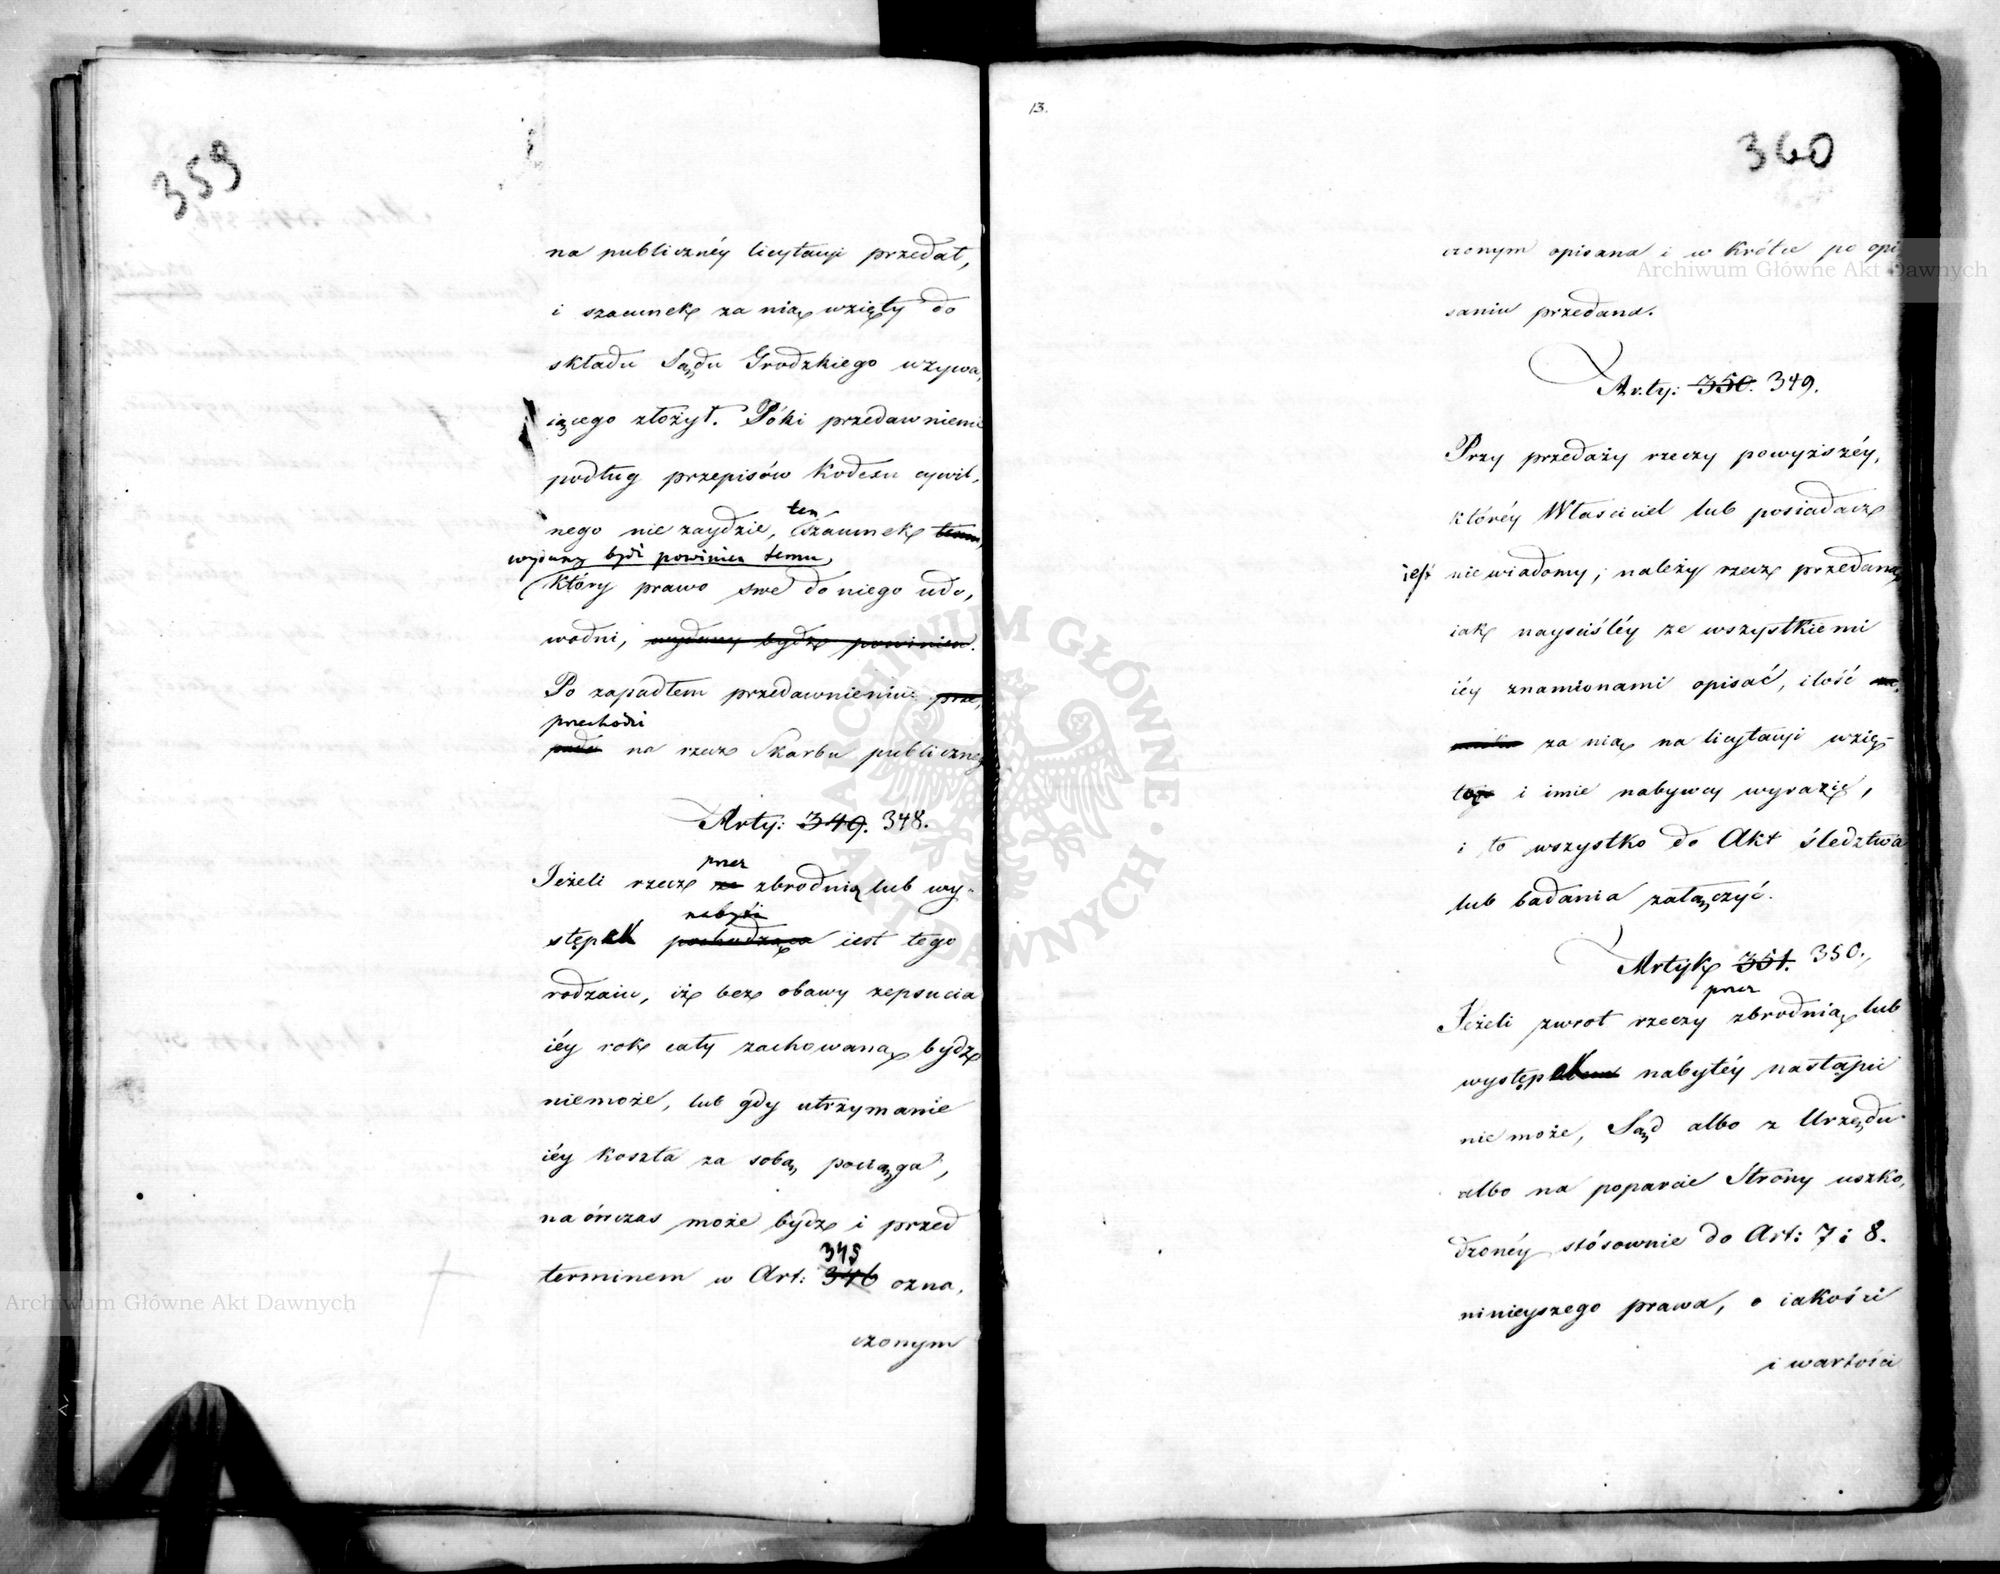 359
na publicznéy licytacyi przedał,
i szacunek za nią wzięty do
składu Sądu Grodzkiego wzywa,
iącego złożył. Póki przedawnienie
podług przepisów Kodexu cywil,
nego nie zaydzie, ten szacunek temu,
wydany bydź powinien temu,
który prawo swe do niego udo,
wodni, wydany bydź powinien.
Po zapadłem przedawnieniu prze,
przechodzi
pada na rzecz Skarbu publiczneg
Arty: 349. 348.
przez
Jeżeli rzecz ze zbrodnią lub wy-
nabyta
stępek pochodząca iest tego
rodzaiu, iż bez obawy zepsucia
iéy rok cały zachowaną bydź
niemoże, lub gdy utrzymanie
iéy koszta za sobą pociąga,
naówczas może bydź i przed
345
terminem w Art: 346 ozna,
czonym
13.
360
czonym opisana i w krótce po opi
saniu przedana.
Arty: 350. 349.
Przy przedaży rzeczy powyższéy,
któréy Właściciel lub posiadacz
iest niewiadomy, należy rzecz przedaną
iak nayściśléy ze wszystkiemi
iéy znamionami opisać, ilość
za nią na licytacyi wzię-
tą i imie nabywcy wyrazić,
i to wszystko do Akt śledztwa
lub badania załączyć.
Artyk 351. 350.
przez
Jeżeli zwrot rzeczy zbrodnią lub
występek nabytéy nastąpić
niemoże, Sąd albo z Urzędu
albo na poparcie Strony uszko,
dzonéy stósownie do Art: 7 i 8.
ninieyszego prawa, o iakości
i wartości
Archiwum Główne Akt Dawnych
Archiwum Główne Akt Dawnych
ARCHIWUM GŁÓWNE AKT DAWNYCH